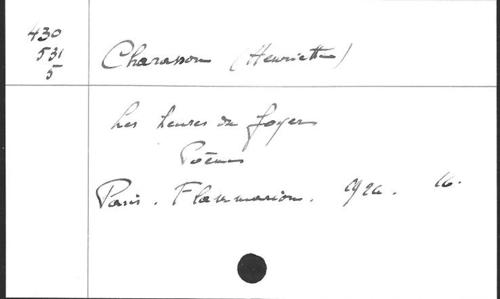 430
531
5
Charasson (Henriette)
Les heures du foyer
Poèmes
Paris. Flammarion. 16.